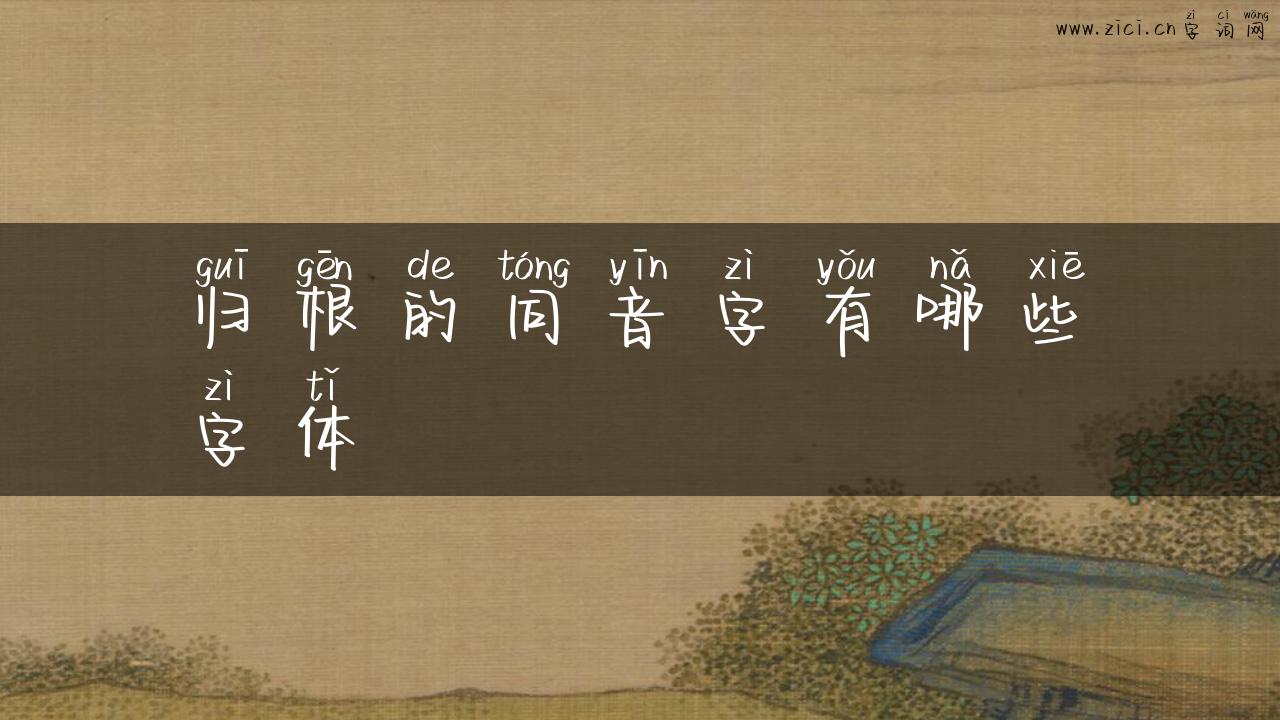 zì cí wǎng
www.zici.cn 字词网
guī gēn de tóng yīn zì yǒu nǎ xiē
归根的同音字有哪些
zì tǐ
字体